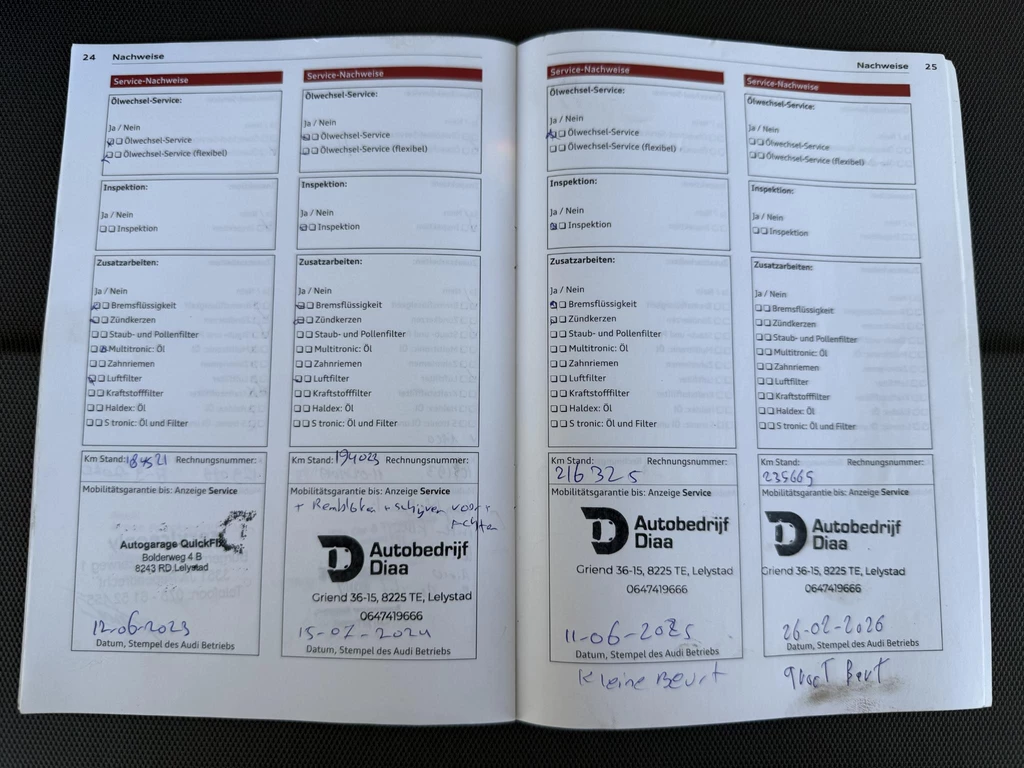 24 Nachweise
Service-Nachweise
Ölwechsel-Service:
Ja / Nein
Ölwechsel-Service
Ölwechsel-Service (flexibel)
Inspektion:
Ja / Nein
Inspektion
Zusatzarbeiten:
Ja / Nein
Bremsflüssigkeit
Zündkerzen
Staub- und Pollenfilter
Multitronic: Öl
Zahnriemen
Luftfilter
Kraftstofffilter
Haldex: Öl
S tronic: Öl und Filter
Km Stand: 184521 Rechnungsnummer:
Mobilitätsgarantie bis: Anzeige Service
Autogarage QuickFix
Bolderweg 4 B
8243 RD Lelystad
12-06-2023
Datum, Stempel des Audi Betriebs
Service-Nachweise
Ölwechsel-Service:
Ja / Nein
Ölwechsel-Service
Ölwechsel-Service (flexibel)
Inspektion:
Ja / Nein
Inspektion
Zusatzarbeiten:
Ja / Nein
Bremsflüssigkeit
Zündkerzen
Staub- und Pollenfilter
Multitronic: Öl
Zahnriemen
Luftfilter
Kraftstofffilter
Haldex: Öl
S tronic: Öl und Filter
Km Stand: 194023 Rechnungsnummer:
Mobilitätsgarantie bis: Anzeige Service
+ Rembloken + schijven voor +
achten
Autobedrijf
Diaa
Griend 36-15, 8225 TE, Lelystad
0647419666
15-02-2024
Datum, Stempel des Audi Betriebs
Nachweise 25
Service-Nachweise
Ölwechsel-Service:
Ja / Nein
Ölwechsel-Service
Ölwechsel-Service (flexibel)
Inspektion:
Ja / Nein
Inspektion
Zusatzarbeiten:
Ja / Nein
Bremsflüssigkeit
Zündkerzen
Staub- und Pollenfilter
Multitronic: Öl
Zahnriemen
Luftfilter
Kraftstofffilter
Haldex: Öl
S tronic: Öl und Filter
Km Stand: Rechnungsnummer:
216325
Mobilitätsgarantie bis: Anzeige Service
Autobedrijf
Diaa
Griend 36-15, 8225 TE, Lelystad
0647419666
11-06-2025
Datum, Stempel des Audi Betriebs
Kleine Beurt
Service-Nachweise
Ölwechsel-Service:
Ja / Nein
Ölwechsel-Service
Ölwechsel-Service (flexibel)
Inspektion:
Ja / Nein
Inspektion
Zusatzarbeiten:
Ja / Nein
Bremsflüssigkeit
Zündkerzen
Staub- und Pollenfilter
Multitronic: Öl
Zahnriemen
Luftfilter
Kraftstofffilter
Haldex: Öl
S tronic: Öl und Filter
Km Stand: Rechnungsnummer:
235665
Mobilitätsgarantie bis: Anzeige Service
Autobedrijf
Diaa
Griend 36-15, 8225 TE, Lelystad
0647419666
26-02-2026
Datum, Stempel des Audi Betriebs
Beurt